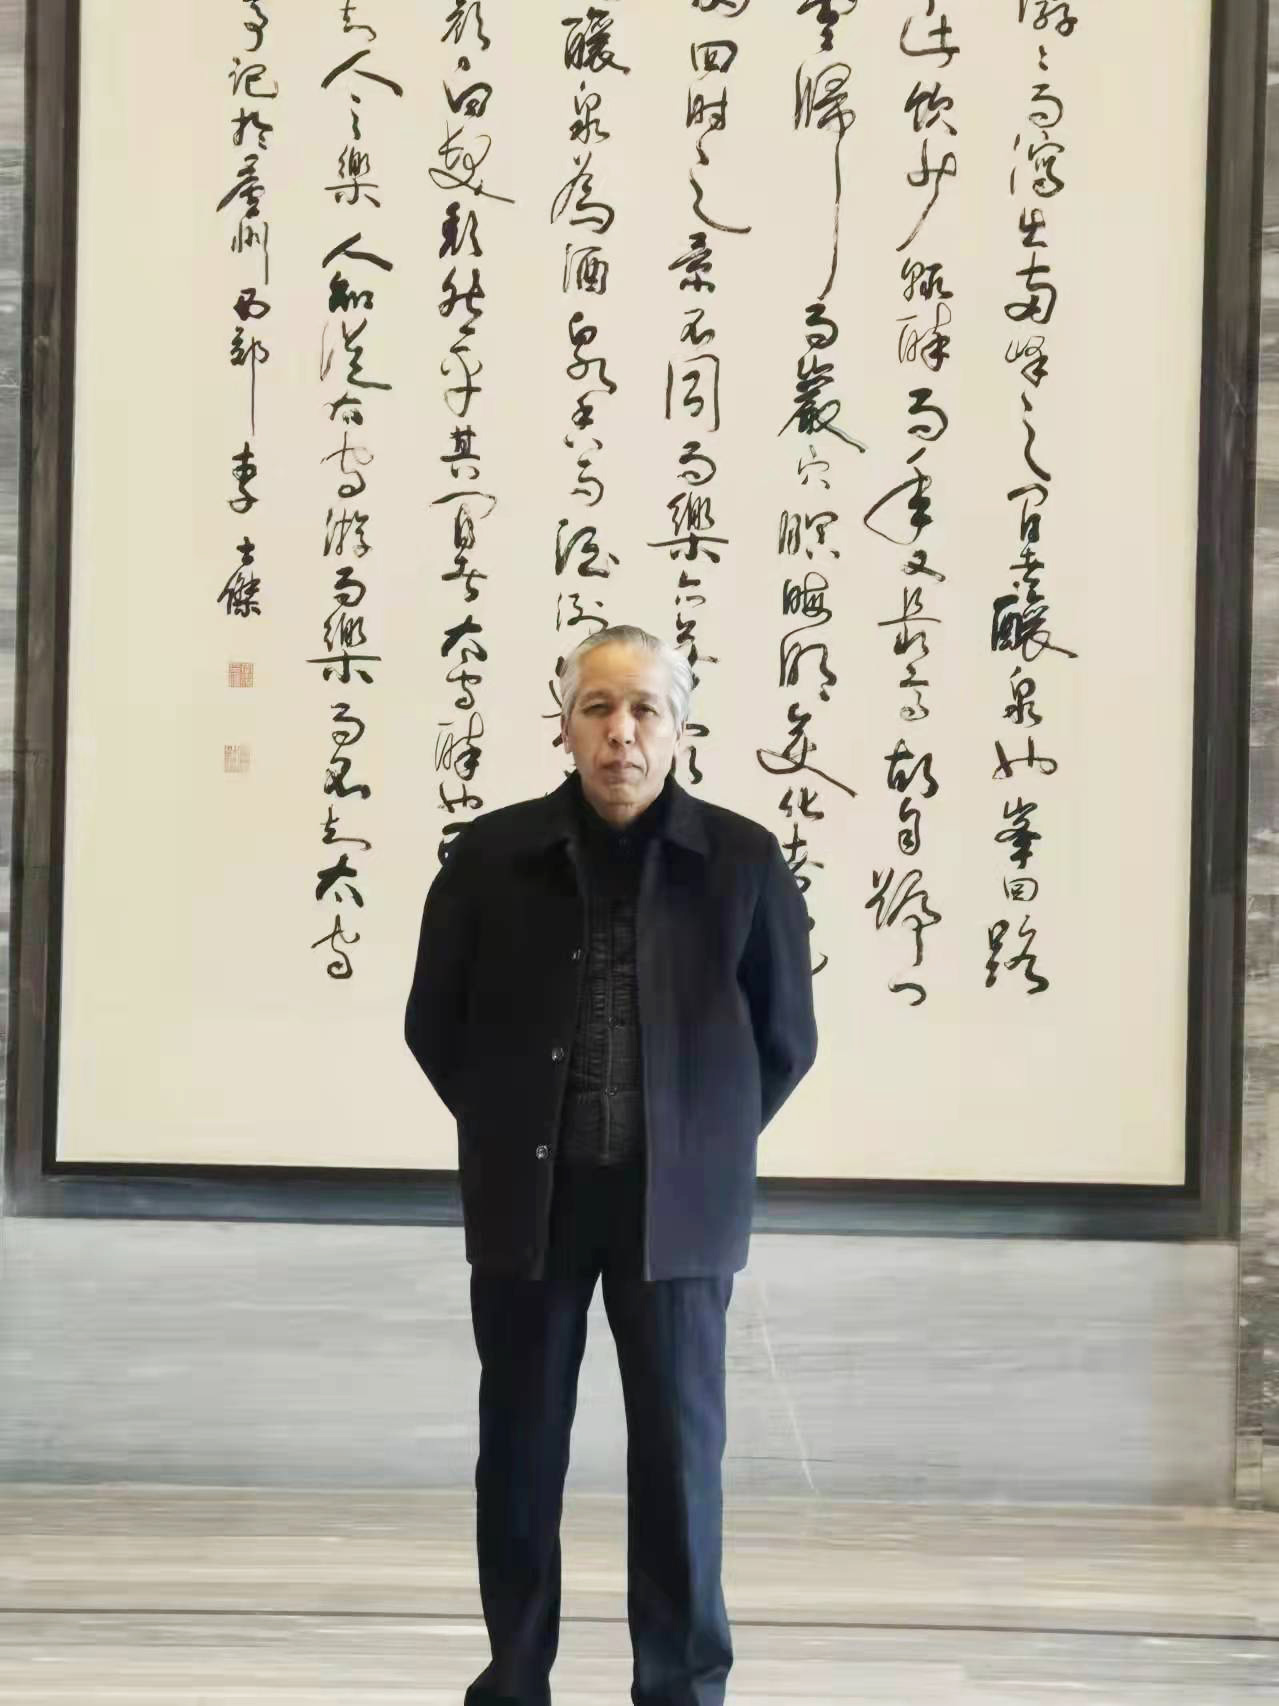 潺而瀉出兩峰之間者釀泉也峯回路
于此飲少輒醉而年又最高故自號曰
雲歸而巖穴暝晦明變化者
四時之景不同而樂亦無
釀泉為酒泉香而酒洌
顏白髮頹然乎其間者太守醉也
知人之樂人知從太守游而樂而不知太守
記於廬州西郊李士傑